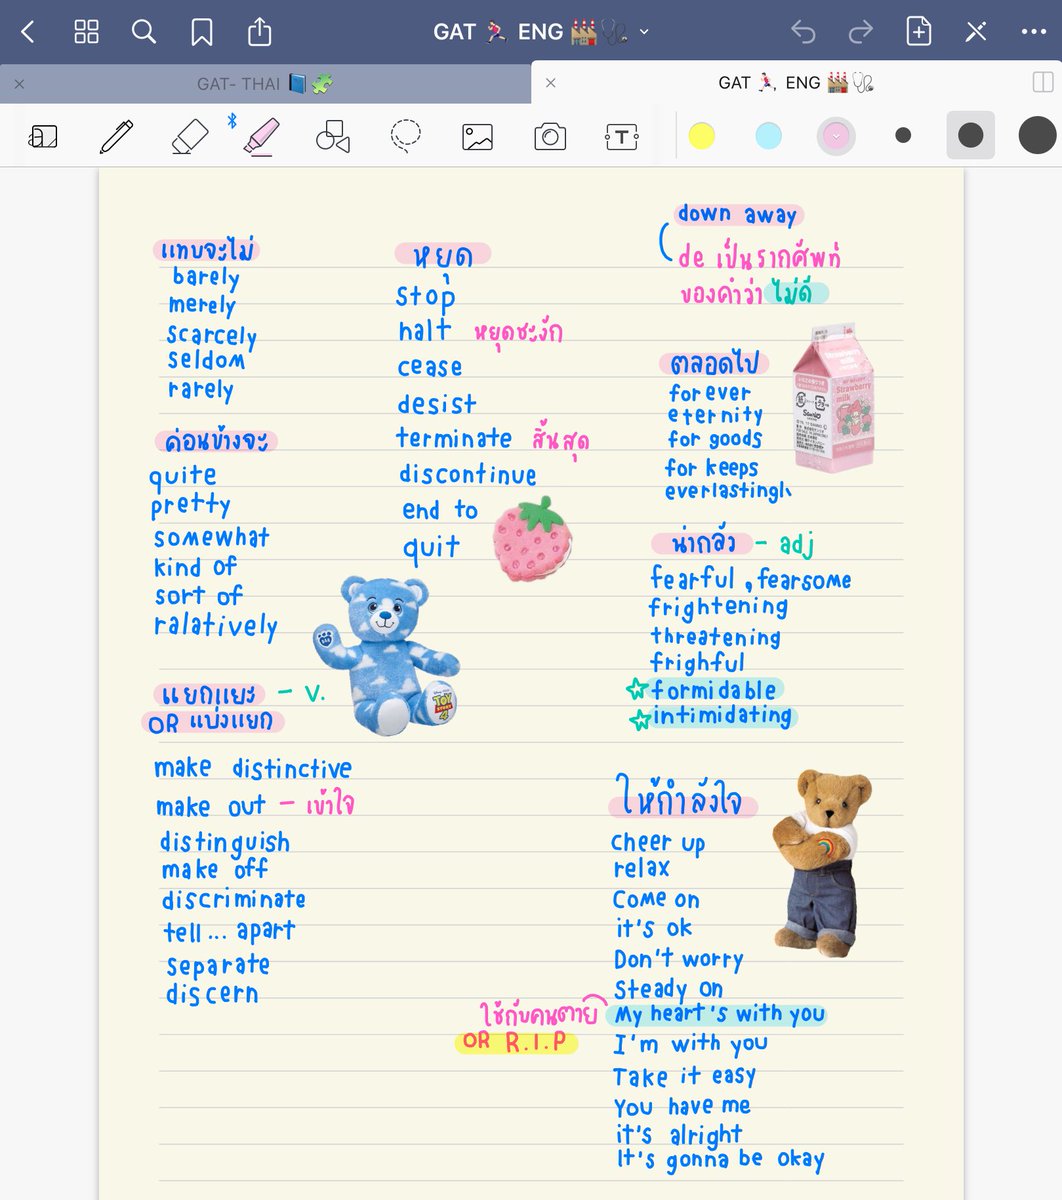 GAT 🏃🏻‍♀️ ENG 🏭🩺
GAT- THAI 📘🧩
GAT 🏃🏻‍♀️, ENG 🏭🩺
แทบจะไม่
barely
merely
scarcely
seldom
rarely
ค่อนข้างจะ
quite
pretty
somewhat
kind of
sort of
ralatively
แยกแยะ - v.
OR แบ่งแยก
make distinctive
make out - เข้าใจ
distinguish
make off
discriminate
tell... apart
separate
discern
หยุด
stop
halt หยุดชะงัก
cease
desist
terminate สิ้นสุด
discontinue
end to
quit
TOY
STORY
4
down away
de เป็นรากศัพท์
ของคำว่า ไม่ดี
ตลอดไป
forever
eternity
for goods
for keeps
everlastingly
Strawberry
milk
Strawberry
milk
Sanrio
น่ากลัว - adj
fearful, fearsome
frightening
threatening
frighful
☆ formidable
☆ intimidating
ให้กำลังใจ
cheer up
relax
Come on
it's ok
Don't worry
Steady on
ใช้กับคนตาย My heart's with you
OR R.I.P
I'm with you
Take it easy
You have me
it's alright
It's gonna be okay